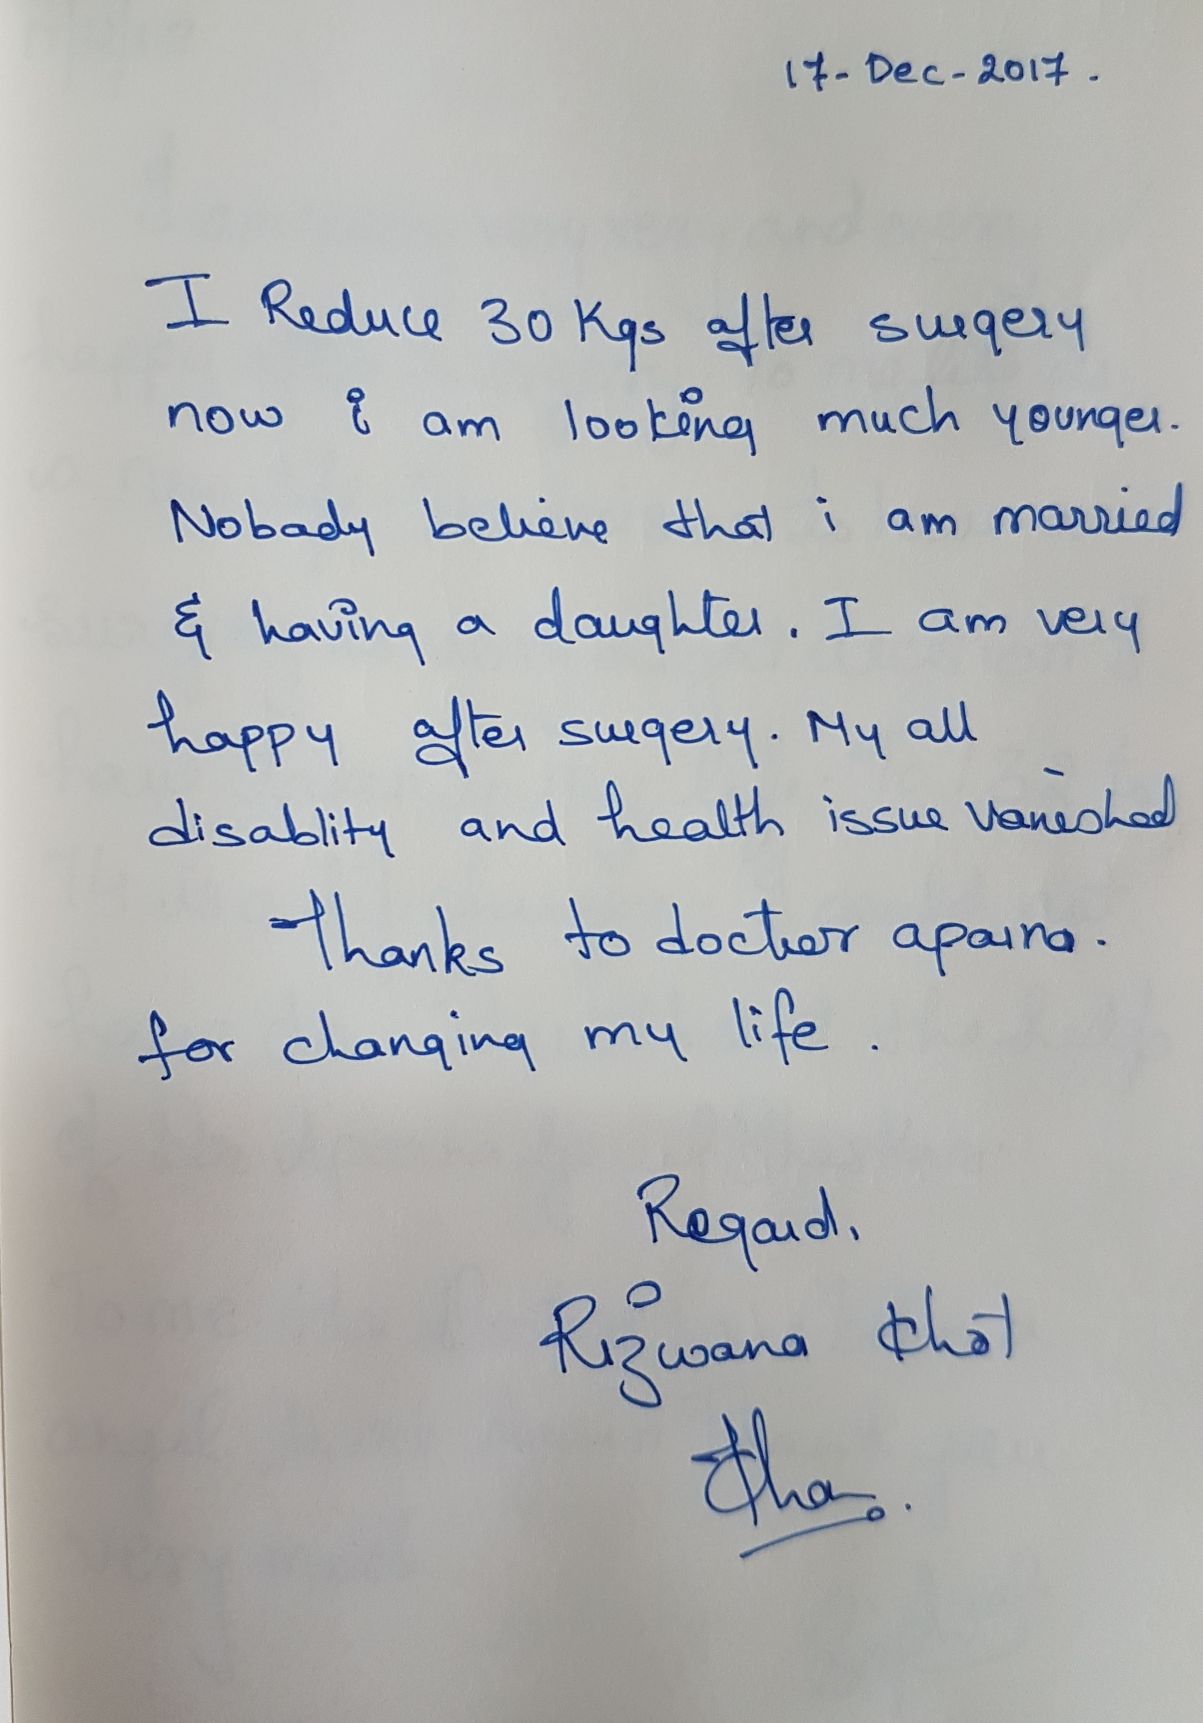 17-Dec-2017.
I Reduce 30 Kgs after surgery
now i am looking much younger.
Nobady believe that i am married
& having a daughter. I am very
happy after surgery. My all
disablity and health issue vanished
Thanks to doctor aparna.
for changing my life.
Regard,
Rizwana Khot